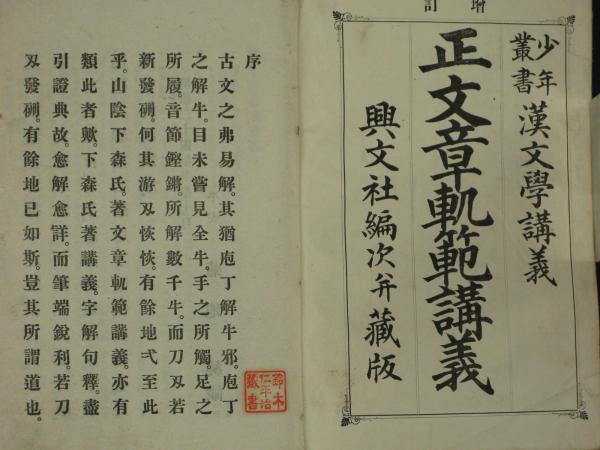 增訂
少年叢書 漢文學講義
正文章軌範講義
興文社編次幷藏版
序
古文之弗易解。其猶庖丁解牛邪。庖丁
之解牛。目未嘗見全牛。手之所觸。足之
所履。音節鏗鏘。所解數千牛。而刀刄若
新發硎。何其游刄恢恢。有餘地弌至此
乎。山陰下森氏。著文章軌範講義。亦有
類此者歟。下森氏著講義。字解句釋。盡
引證典故。愈解愈詳。而筆端銳利。若刀
刄發硎。有餘地已如斯。豈其所謂道也。
鈴木
仁平治
藏書